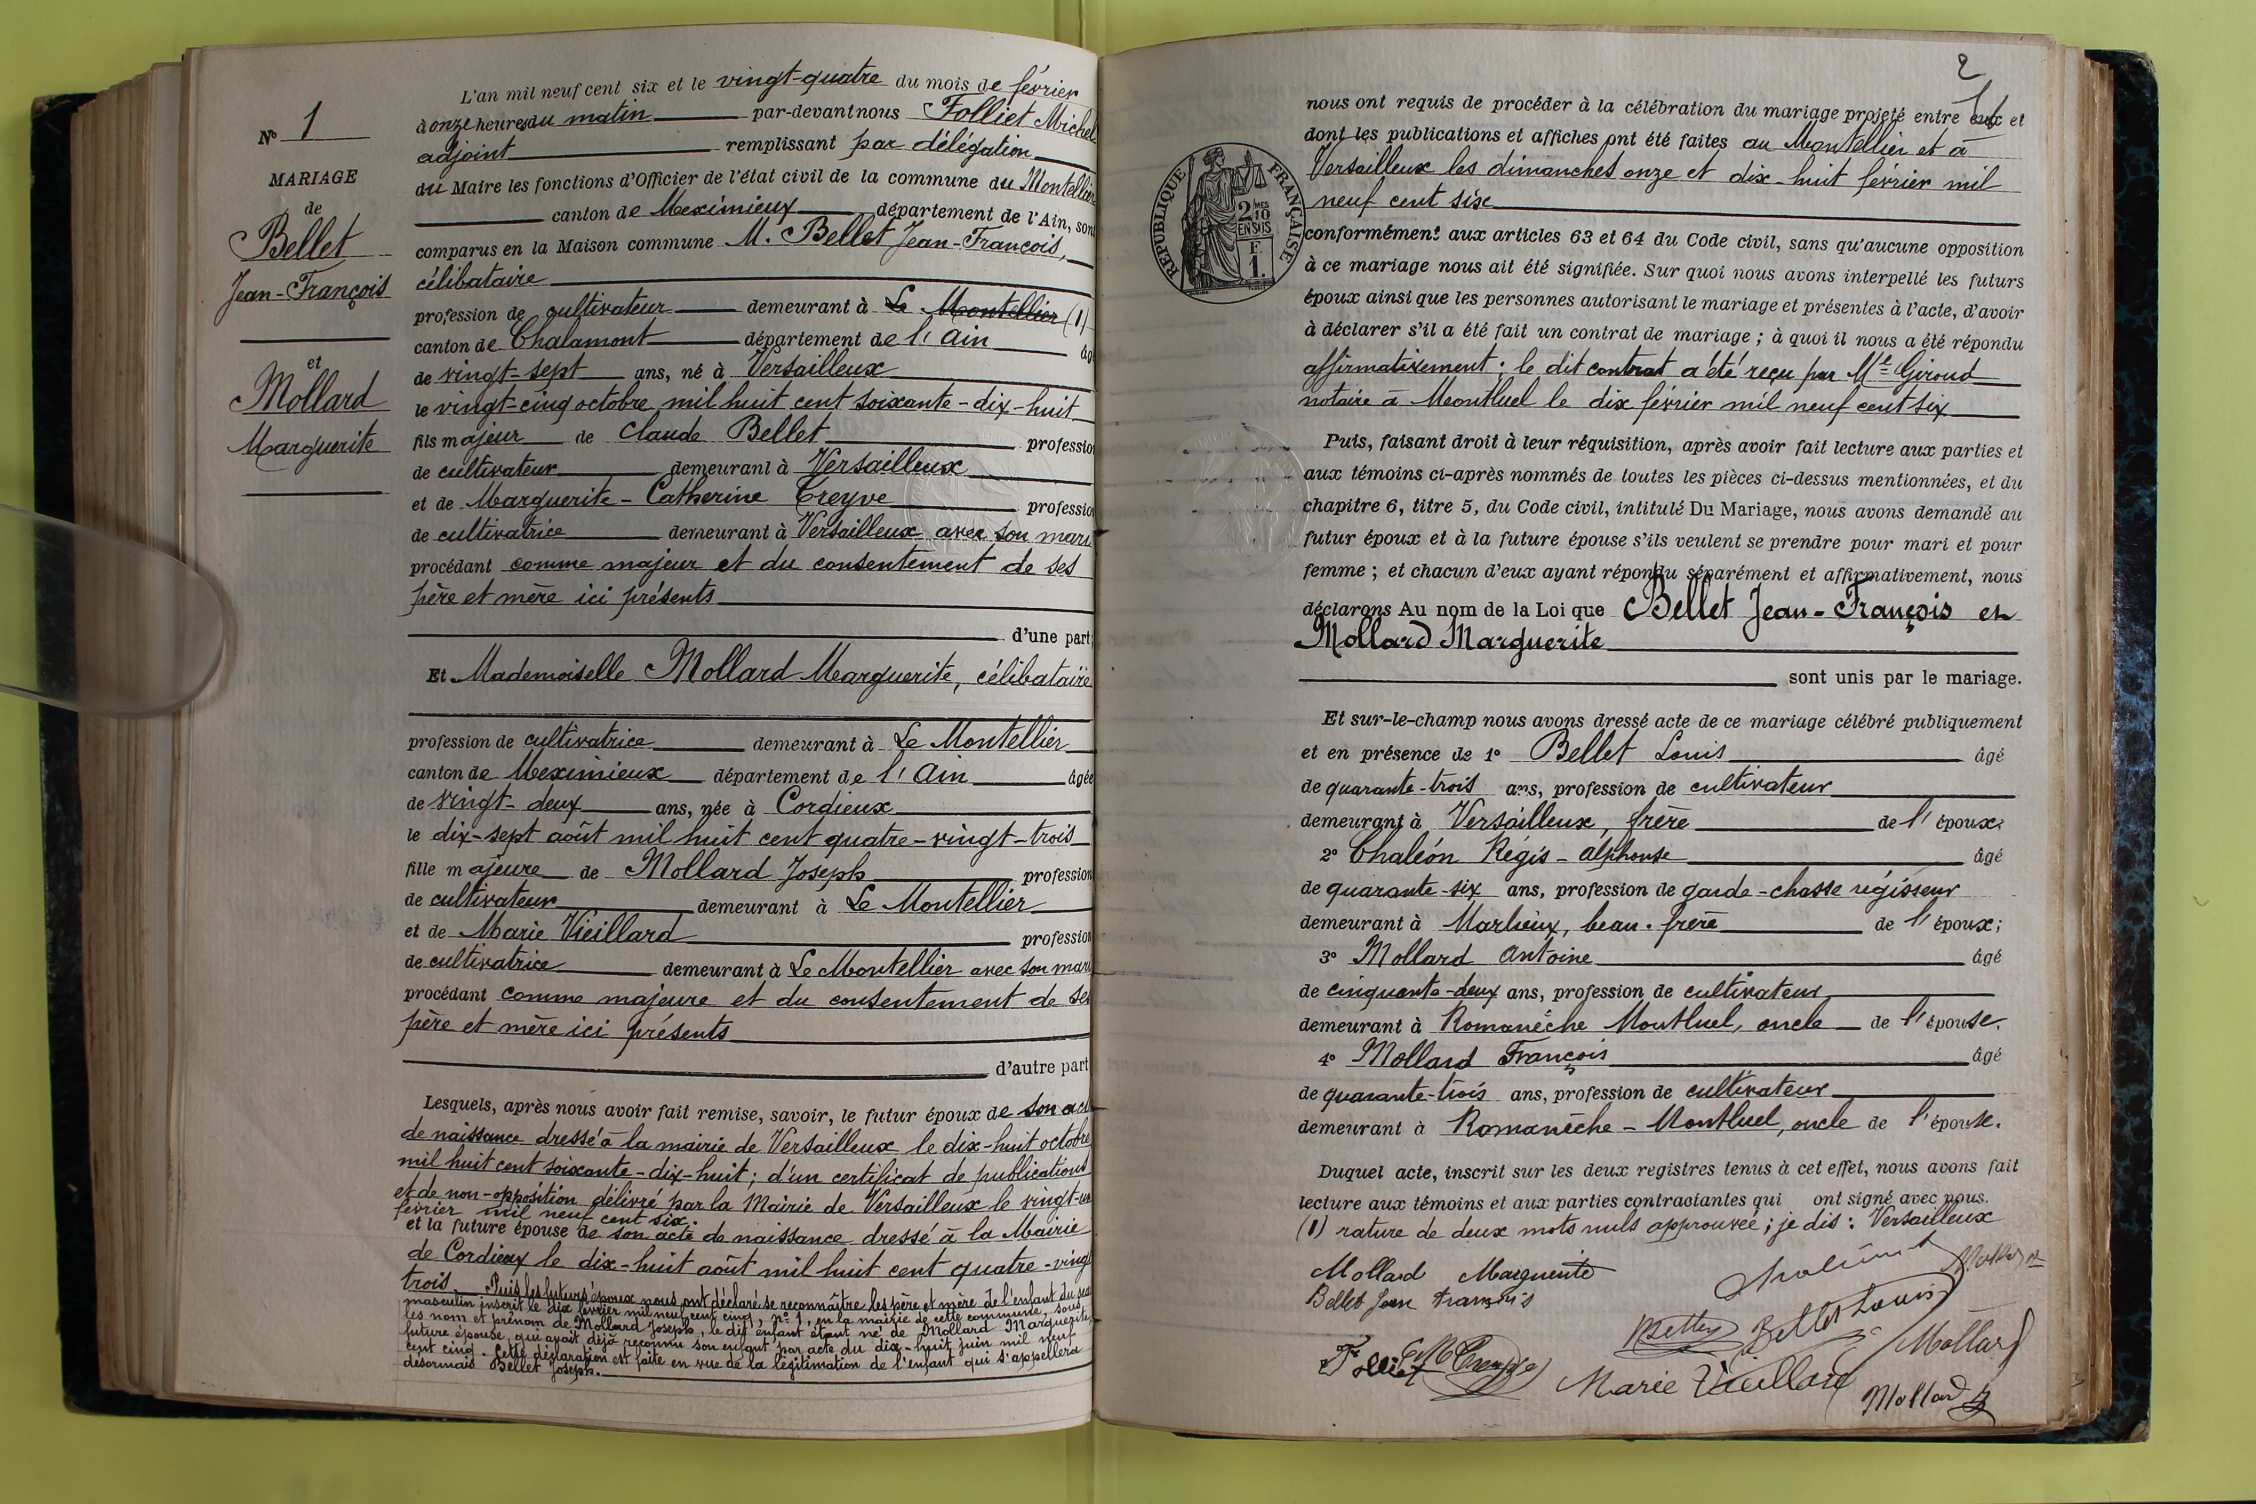 N° 1
MARIAGE
de
Bellet
Jean-François
et
Mollard
Marguerite
L'an mil neuf cent six et le vingt-quatre du mois de février
à onze heures du matin par-devant nous Folliet Michel
adjoint remplissant par délégation
du Maire les fonctions d'Officier de l'état civil de la commune du Montellier
canton de Meximieux département de l'Ain, sont
comparus en la Maison commune M. Bellet Jean-François,
célibataire
profession de cultivateur demeurant à Le Montellier (1)
canton de Chalamont département de l'Ain âgé
de vingt-sept ans, né à Versailleux
le vingt-cinq octobre mil huit cent soixante-dix-huit
fils majeur de Claude Bellet profession
de cultivateur demeurant à Versailleux
et de Marguerite-Catherine Treyve profession
de cultivatrice demeurant à Versailleux avec son mari
procédant comme majeur et du consentement de ses
père et mère ici présents
d'une part;
Et Mademoiselle Mollard Marguerite, célibataire
profession de cultivatrice demeurant à Le Montellier
canton de Meximieux département de l'Ain âgée
de vingt-deux ans, née à Cordieux
le dix-sept août mil huit cent quatre-vingt-trois
fille majeure de Mollard Joseph profession
de cultivateur demeurant à Le Montellier
et de Marie Vieillard profession
de cultivatrice demeurant à Le Montellier avec son mari
procédant comme majeure et du consentement de ses
père et mère ici présents
d'autre part
Lesquels, après nous avoir fait remise, savoir, le futur époux de son acte
de naissance dressé à la mairie de Versailleux le dix-huit octobre
mil huit cent soixante-dix-huit; d'un certificat de publications
et de non-opposition délivré par la Mairie de Versailleux le vingt-un
février mil neuf cent six.
et la future épouse de son acte de naissance dressé à la Mairie
de Cordieux le dix-huit août mil huit cent quatre-vingt
trois Puis les futurs époux nous ont déclaré se reconnaître les père et mère de l'enfant du sexe
masculin inscrit le dix février mil neuf cent cinq, n° 1, en la mairie de cette commune, sous
les nom et prénom de Mollard Joseph, le dit enfant étant né de Mollard Marguerite,
future épouse, qui avait déjà reconnu son enfant par acte du dix-huit juin mil neuf
cent cinq. Cette déclaration est faite en vue de la légitimation de l'enfant qui s'appellera
désormais Bellet Joseph.
2
nous ont requis de procéder à la célébration du mariage projeté entre eux et
dont les publications et affiches ont été faites au Montellier et à
Versailleux les dimanches onze et dix-huit février mil
neuf cent six
RÉPUBLIQUE FRANÇAISE
2 MES
10
EN SUS
F.
1.
conformément aux articles 63 et 64 du Code civil, sans qu'aucune opposition
à ce mariage nous ait été signifiée. Sur quoi nous avons interpellé les futurs
époux ainsi que les personnes autorisant le mariage et présentes à l'acte, d'avoir
à déclarer s'il a été fait un contrat de mariage ; à quoi il nous a été répondu
affirmativement; le dit contrat a été reçu par Me Giroud
notaire à Montluel le dix février mil neuf cent six
Puis, faisant droit à leur réquisition, après avoir fait lecture aux parties et
aux témoins ci-après nommés de toutes les pièces ci-dessus mentionnées, et du
chapitre 6, titre 5, du Code civil, intitulé Du Mariage, nous avons demandé au
futur époux et à la future épouse s'ils veulent se prendre pour mari et pour
femme ; et chacun d'eux ayant répondu séparément et affirmativement, nous
déclarons Au nom de la Loi que Bellet Jean-François et
Mollard Marguerite
sont unis par le mariage.
Et sur-le-champ nous avons dressé acte de ce mariage célébré publiquement
et en présence de 1° Bellet Louis âgé
de quarante-trois ans, profession de cultivateur
demeurant à Versailleux, frère de l'époux;
2° Chaléon Régis-Alphonse âgé
de quarante-six ans, profession de garde-chasse régisseur
demeurant à Marlieux, beau-frère de l'époux;
3° Mollard Antoine âgé
de cinquante-deux ans, profession de cultivateur
demeurant à Romanèche Montluel, oncle de l'épouse.
4° Mollard François âgé
de quarante-trois ans, profession de cultivateur
demeurant à Romanèche-Montluel, oncle de l'épouse.
Duquel acte, inscrit sur les deux registres tenus à cet effet, nous avons fait
lecture aux témoins et aux parties contractantes qui ont signé avec nous.
(1) rature de deux mots nuls approuvée; je dis: Versailleux
Mollard Marguerite
Bellet Jean François
Bellet Louis
Mollard
Folliet
Marie Vieillard
Mollard